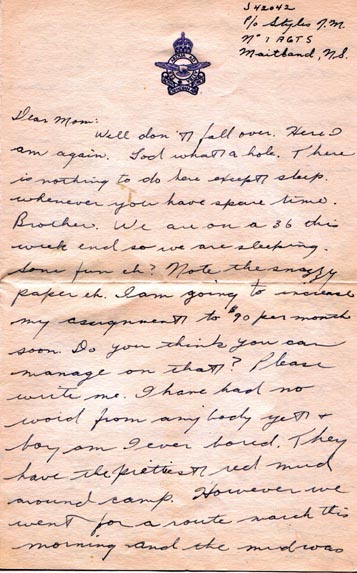 J 42042
P/O Styles J.M.
No 1 AGTS
Maitland, N.S.
Dear Mom:
Well don't fall over. Here I
am again. God what a hole. There
is nothing to do here except sleep
whenever you have spare time.
Brother. We are on a 36 this
week end so we are sleeping.
Some fun eh? Note the snazzy
paper eh. I am going to increase
my assignment to $90 per month
soon. Do you think you can
manage on that? Please
write me. I have had no
word from anybody yet &
boy am I ever bored. They
have the prettiest red mud
around camp. However we
went for a route march this
morning and the mud was